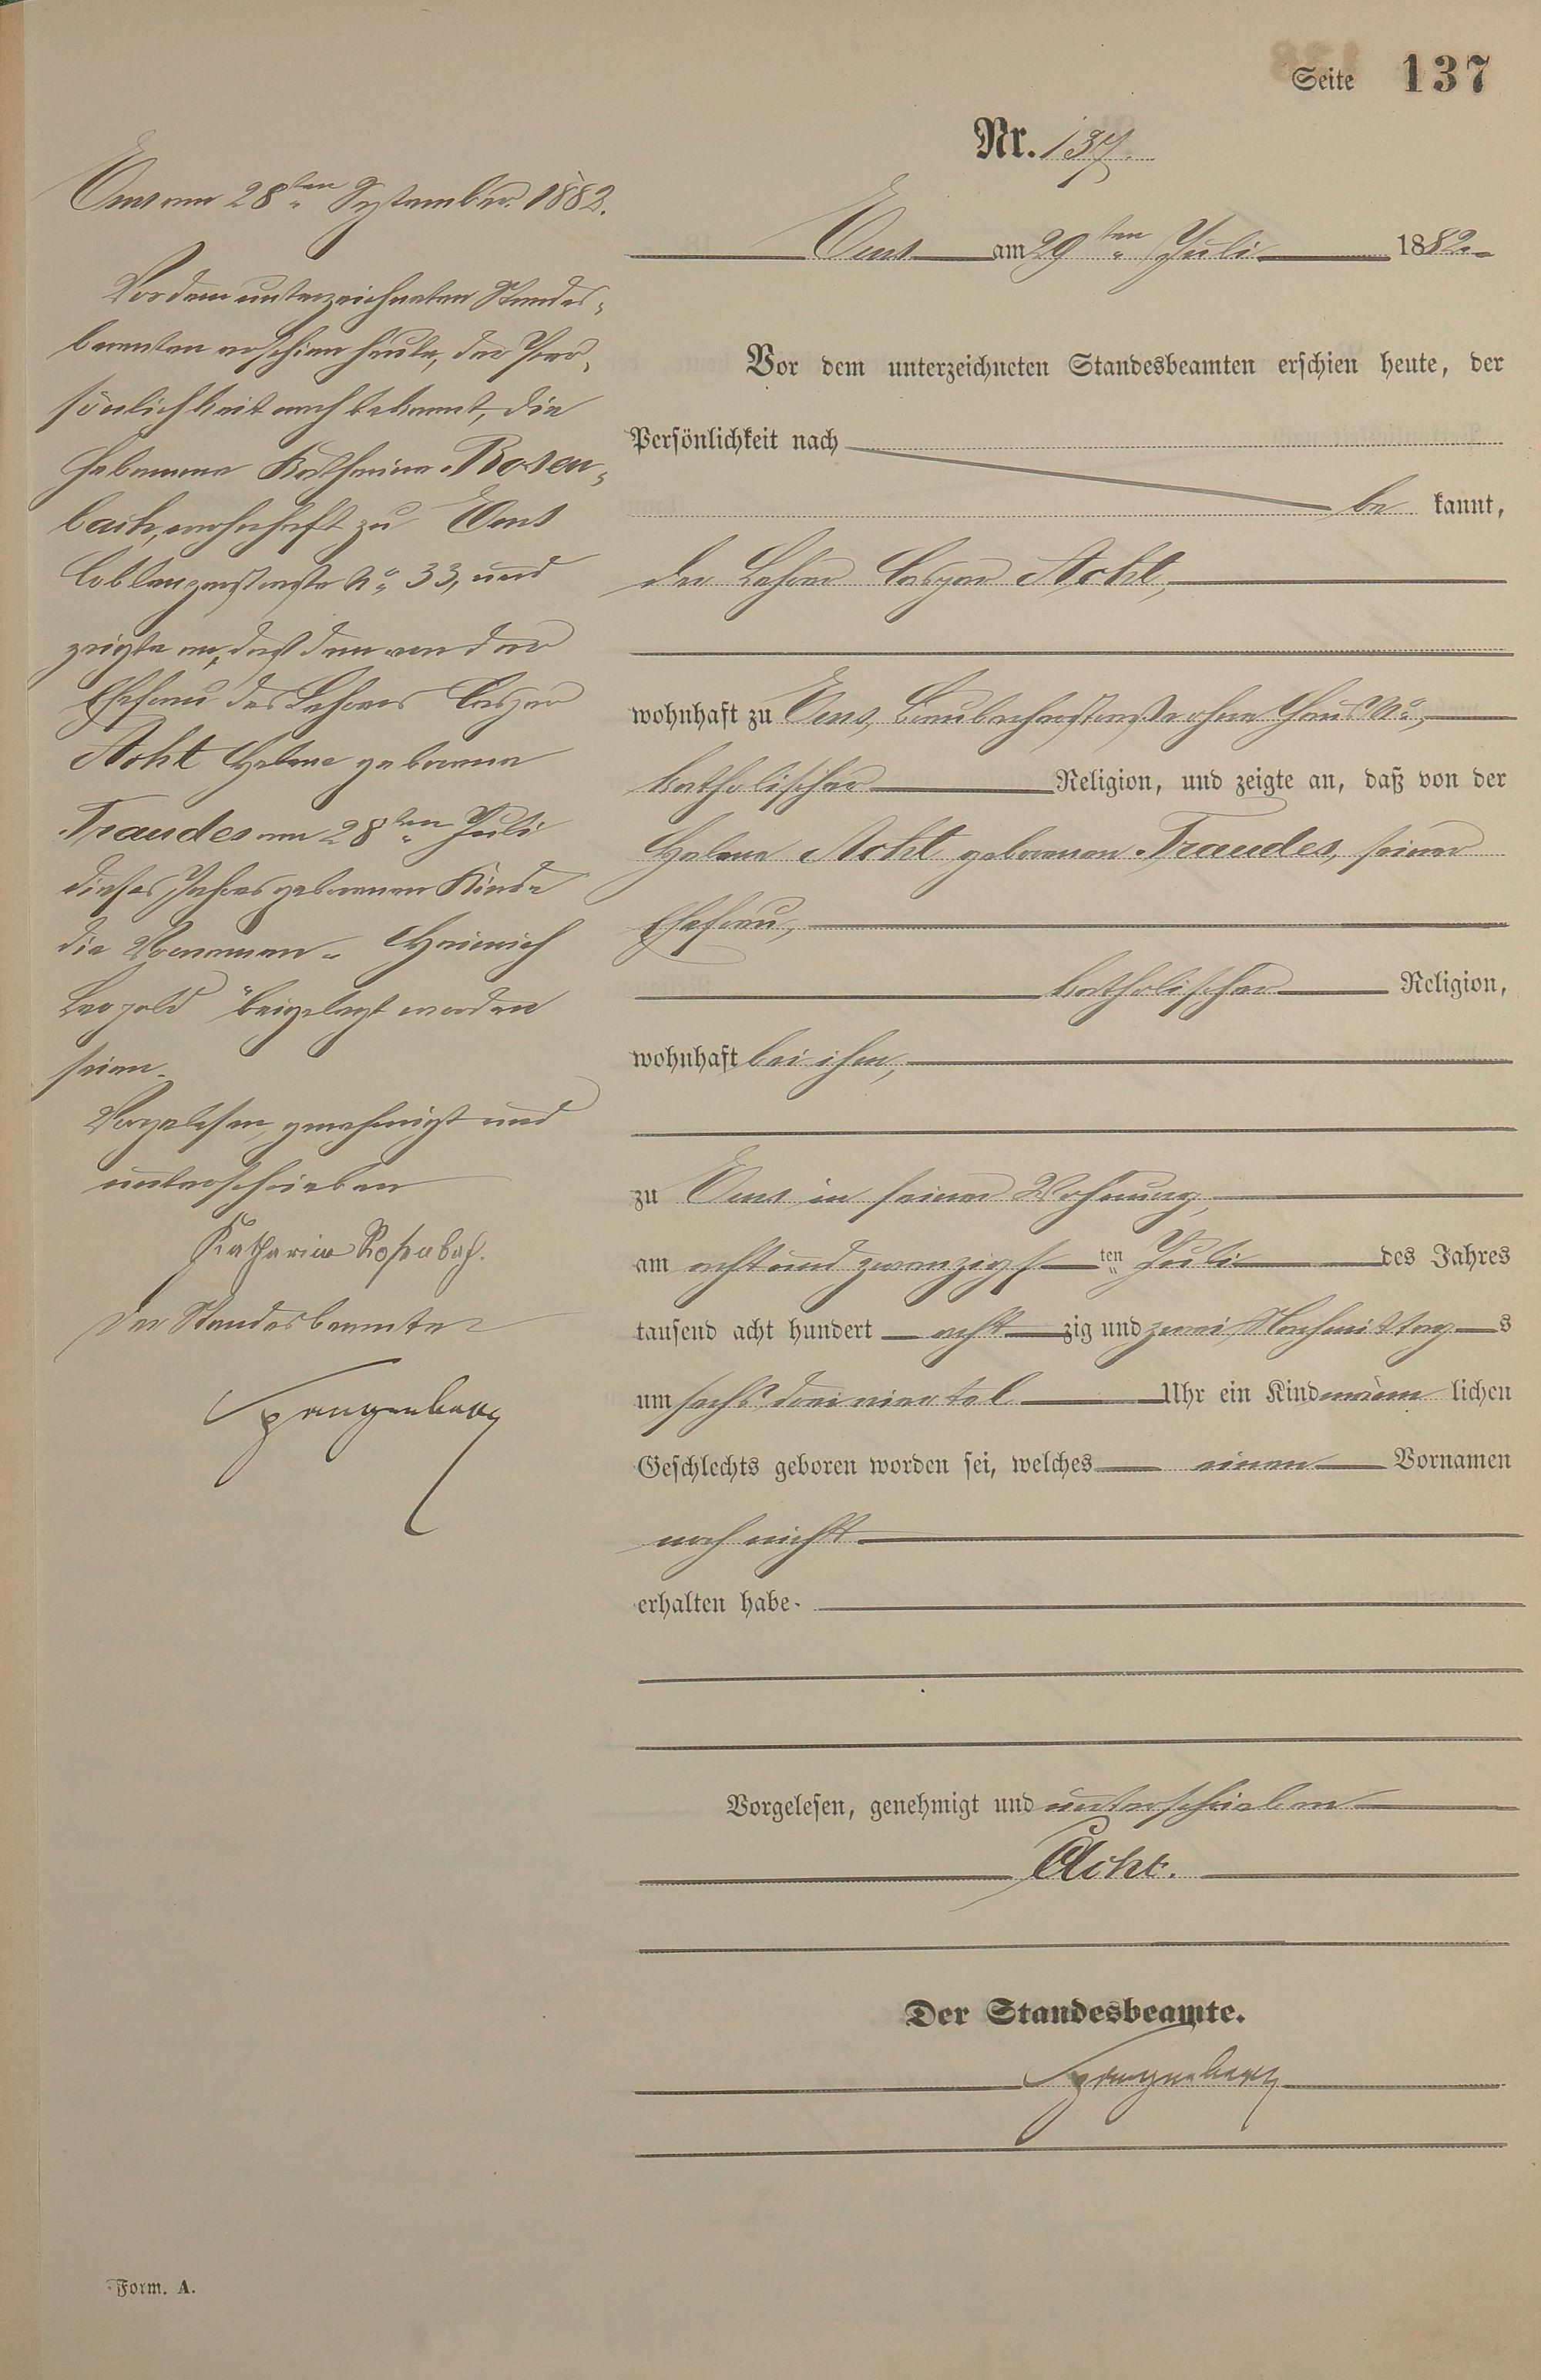 Seite 137
Nr. 137.
Ems am 28ten September 1882.
Vor dem unterzeichneten Standes-
beamten erschien heute, der Per-
sönlichkeit nach bekannt, die
Hebamme Katharina Rosen-
bach, wohnhaft zu Ems
Coblenzerstraße No 33, und
zeigte an, daß dem von der
Ehefrau des Lehrers Caspar
Acht Helene geborene
Traudes am 28ten Juli
dieses Jahres geborenen Kinde
die Vornamen „Heinrich
Leopold" beigelegt worden
seien.
Vorgelesen, genehmigt und
unterschrieben
Katharina Rosenbach.
Der Standesbeamte
Spangenberg
Ems am 29ten Juli 1882.
Vor dem unterzeichneten Standesbeamten erschien heute, der
Persönlichkeit nach
be kannt,
der Lehrer Caspar Acht,
wohnhaft zu Ems, Braubacherstraße ohne Haus No,
katholischer Religion, und zeigte an, daß von der
Helene Acht geborenen Traudes, seiner
Ehefrau,
katholischer Religion,
wohnhaft bei ihm,
zu Ems in seiner Wohnung,
am acht und zwanzigsten Juli des Jahres
tausend acht hundert acht zig und zwei Nachmittags
um sechs dreiviertel Uhr ein Kind männlichen
Geschlechts geboren worden sei, welches einen Vornamen
noch nicht
erhalten habe.
Vorgelesen, genehmigt und unterschrieben
Acht.
Der Standesbeamte.
Spangenberg
Form. A.